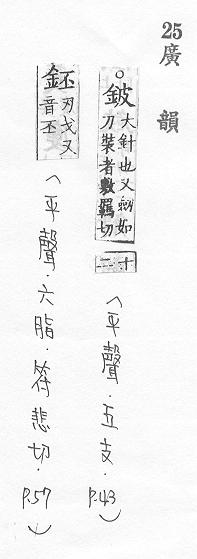 25
廣韻
○鈹 大針也又劒如
刀裝者敷羈切
十二
(平聲.五支. P.43)
鉟 刃戈又
音丕
(平聲.六脂.符悲切. P.57)